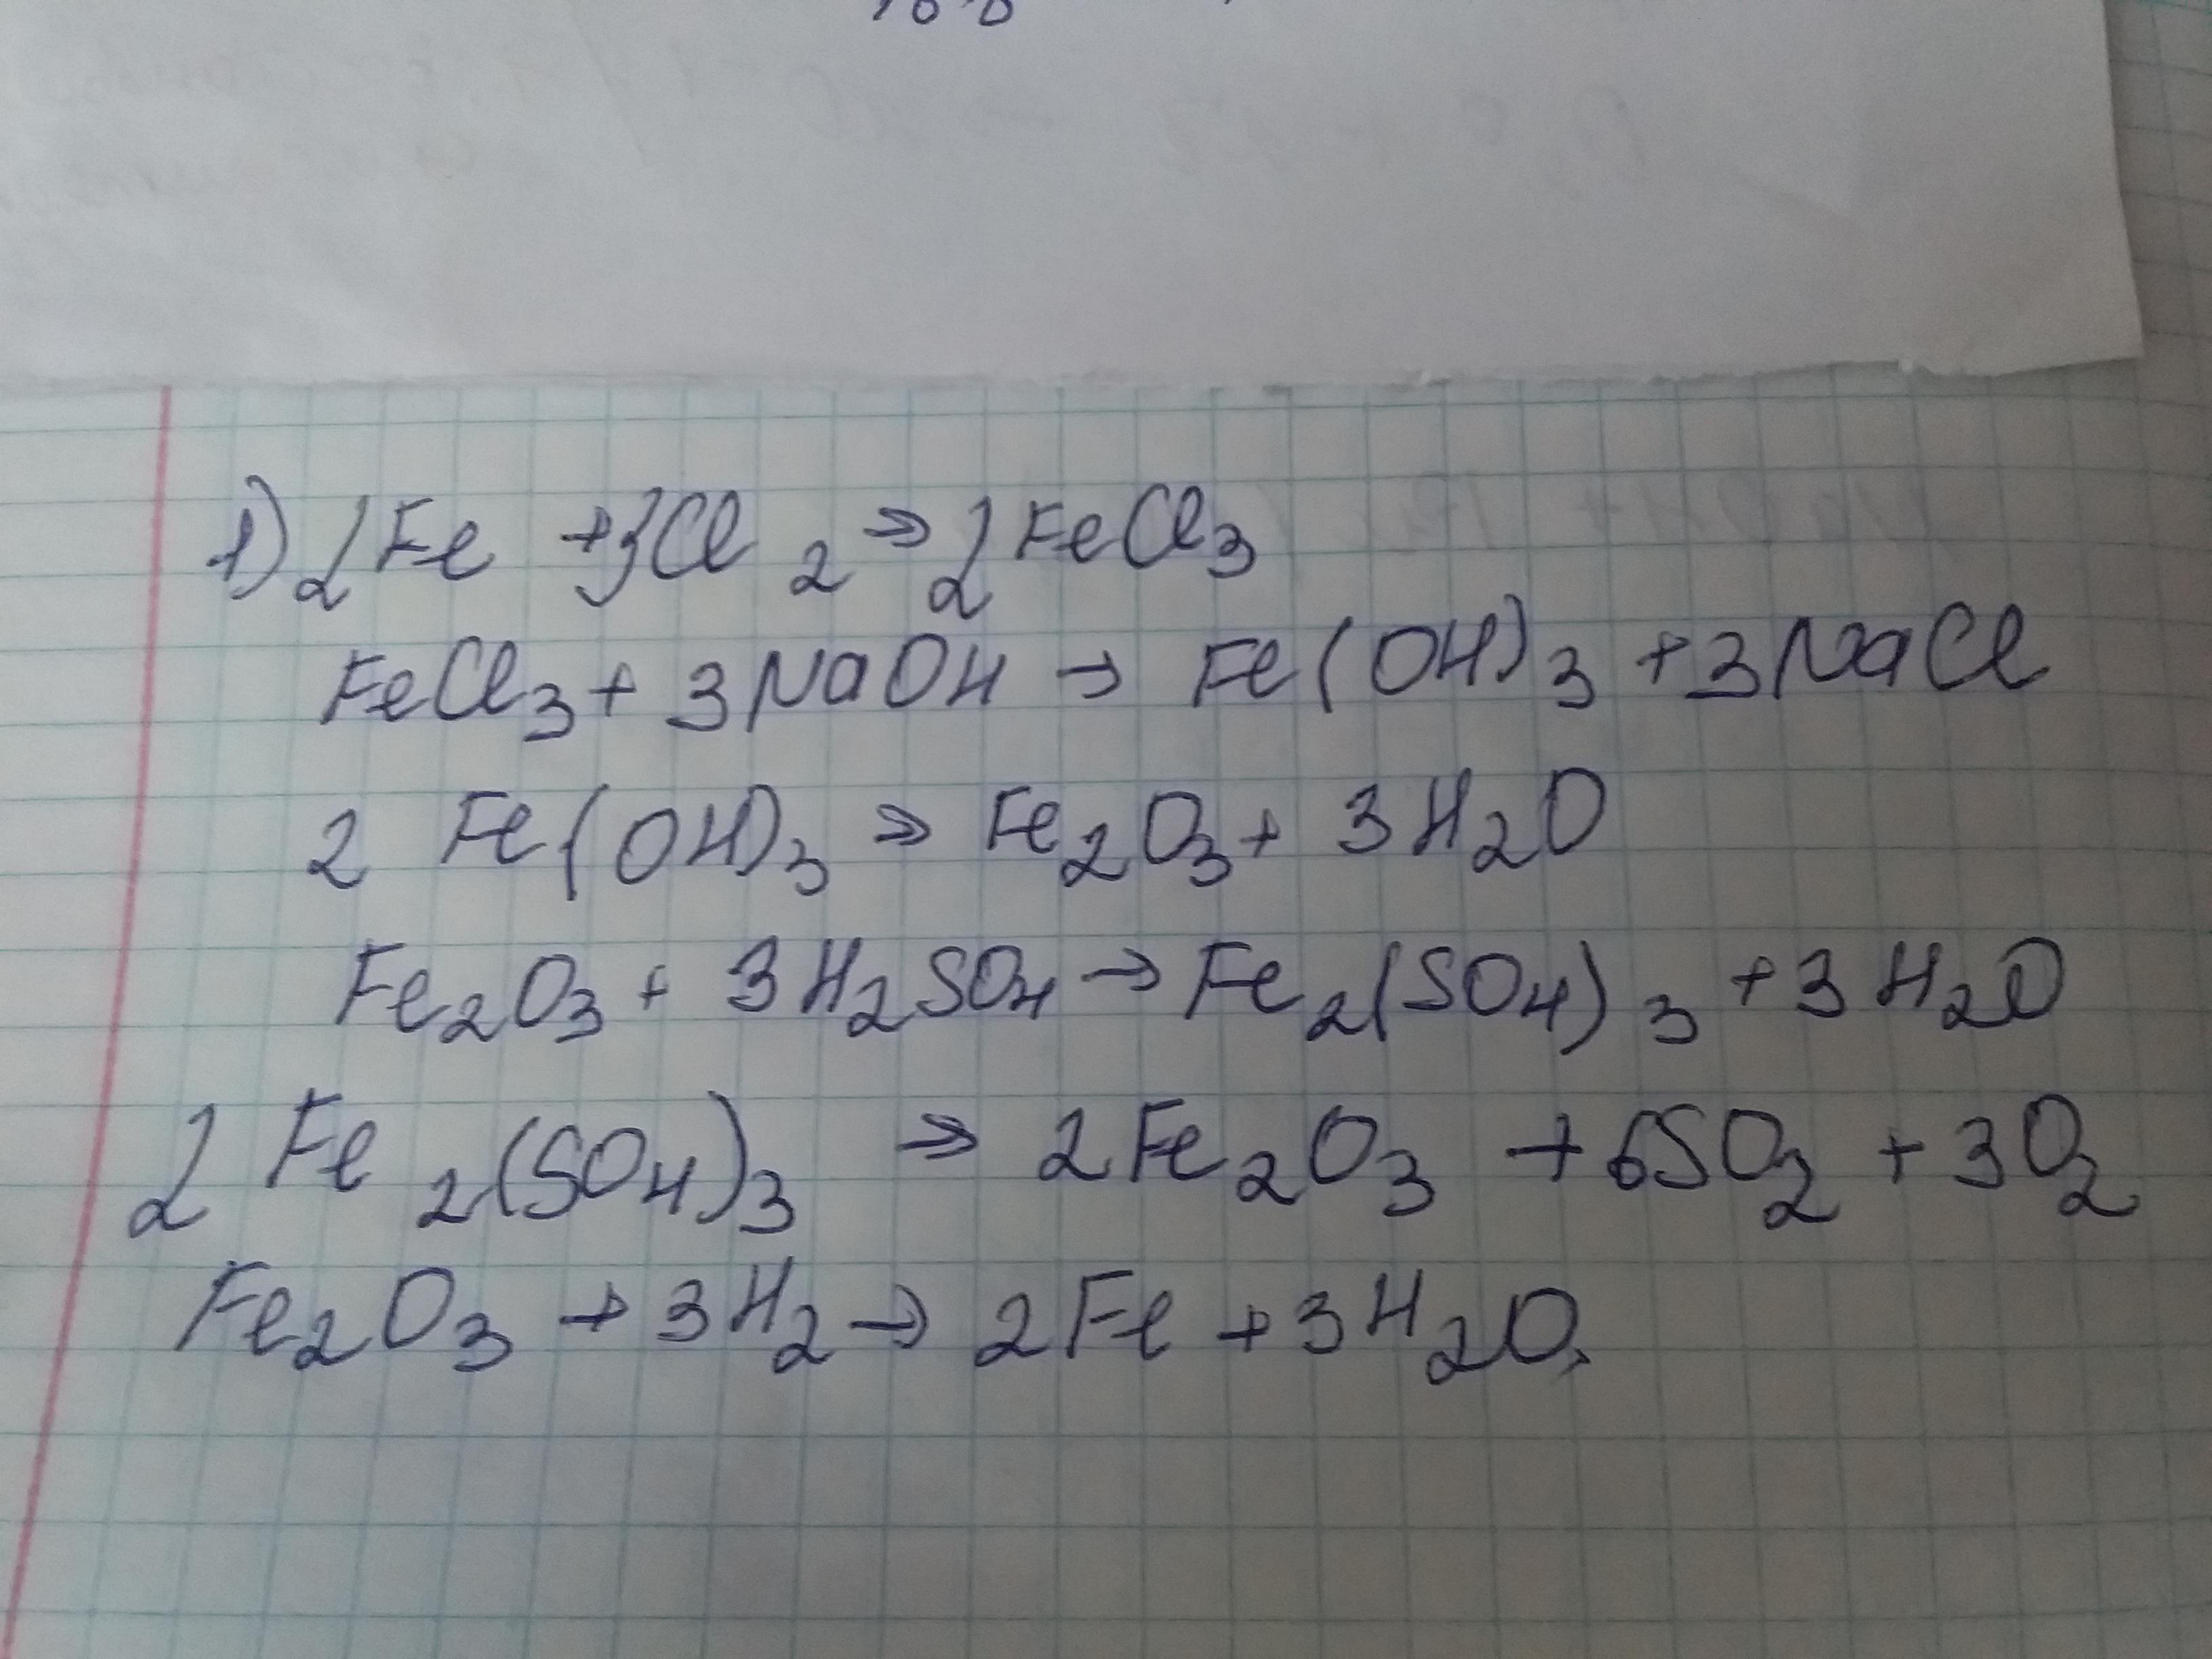 1) 2Fe + 3Cl₂ → 2FeCl₃
FeCl₃ + 3NaOH → Fe(OH)₃ + 3NaCl
2Fe(OH)₃ → Fe₂O₃ + 3H₂O
Fe₂O₃ + 3H₂SO₄ → Fe₂(SO₄)₃ + 3H₂O
2Fe₂(SO₄)₃ → 2Fe₂O₃ + 6SO₂ + 3O₂
Fe₂O₃ + 3H₂ → 2Fe + 3H₂O,